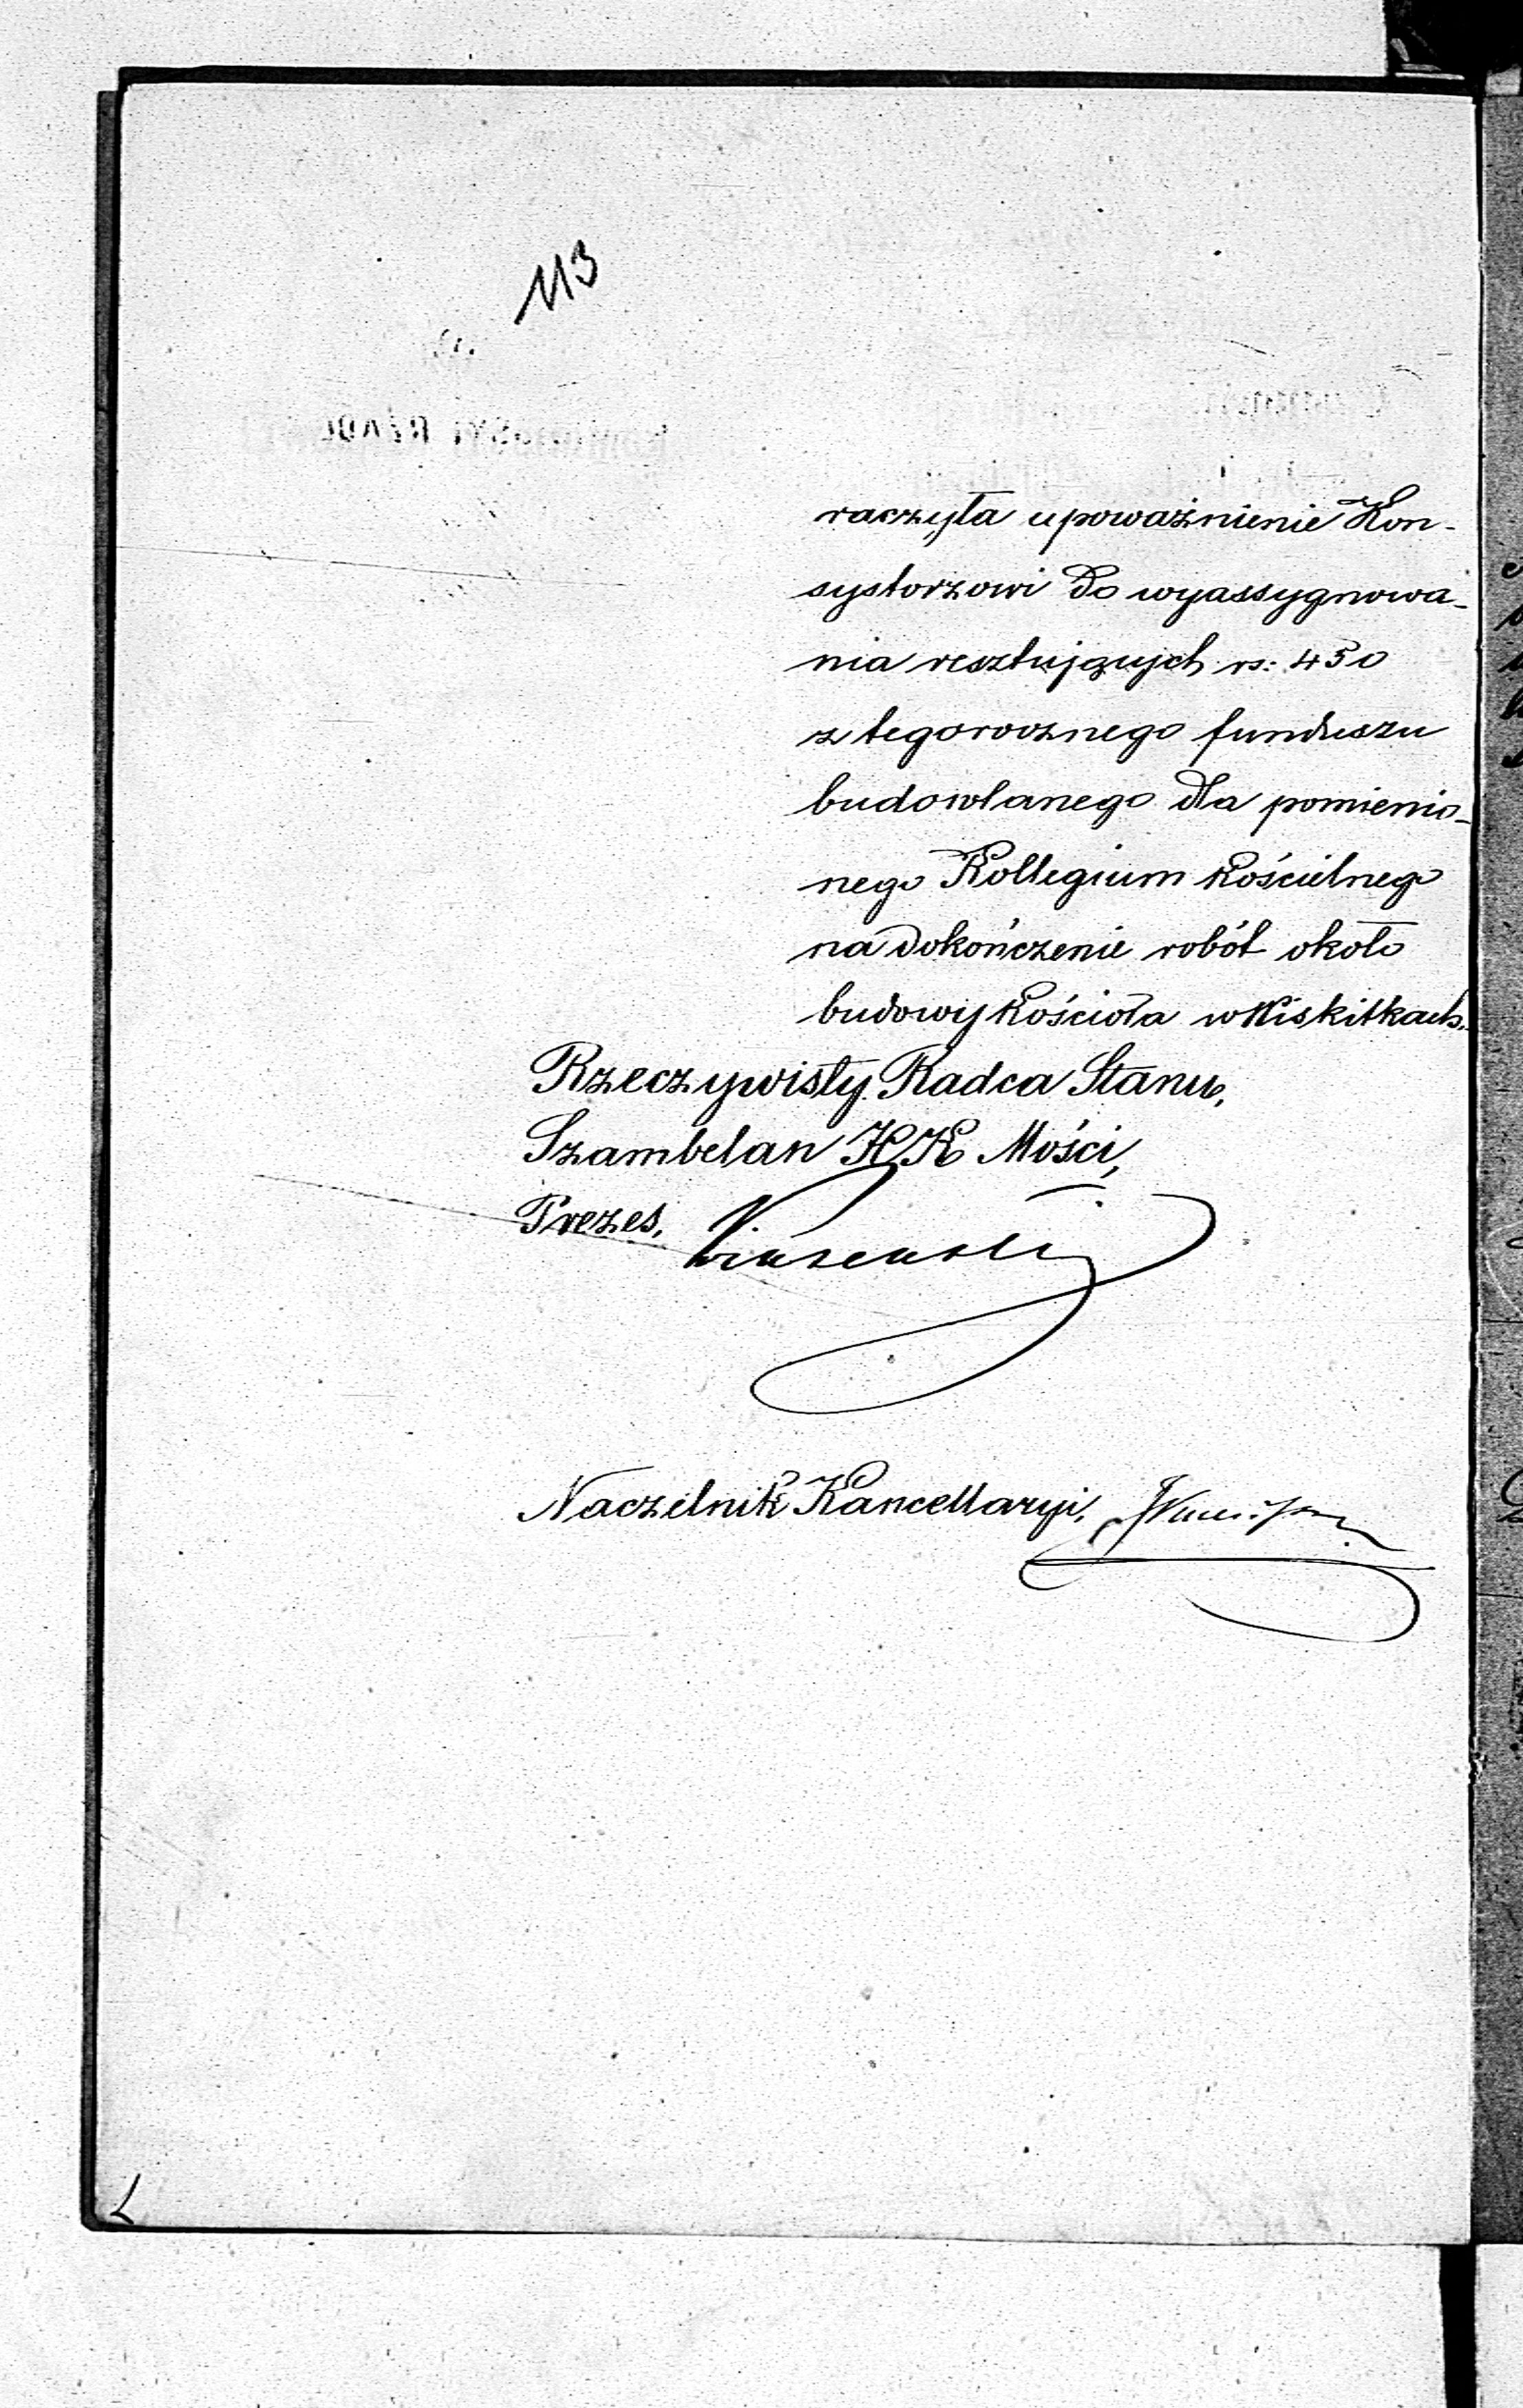 113
raczyła upoważnienie Kon-
systorzowi do wyassygnowa-
nia resztujących rs: 450
z tegorocznego funduszu
budowlanego dla pomienio-
nego Kollegium kościelnego
na dokończenie robót około
budowy kościoła w Wiskitkach.
Rzeczywisty Radca Stanu,
Szambelan JCK Mości,
Prezes.
Naczelnik Kancellaryi,